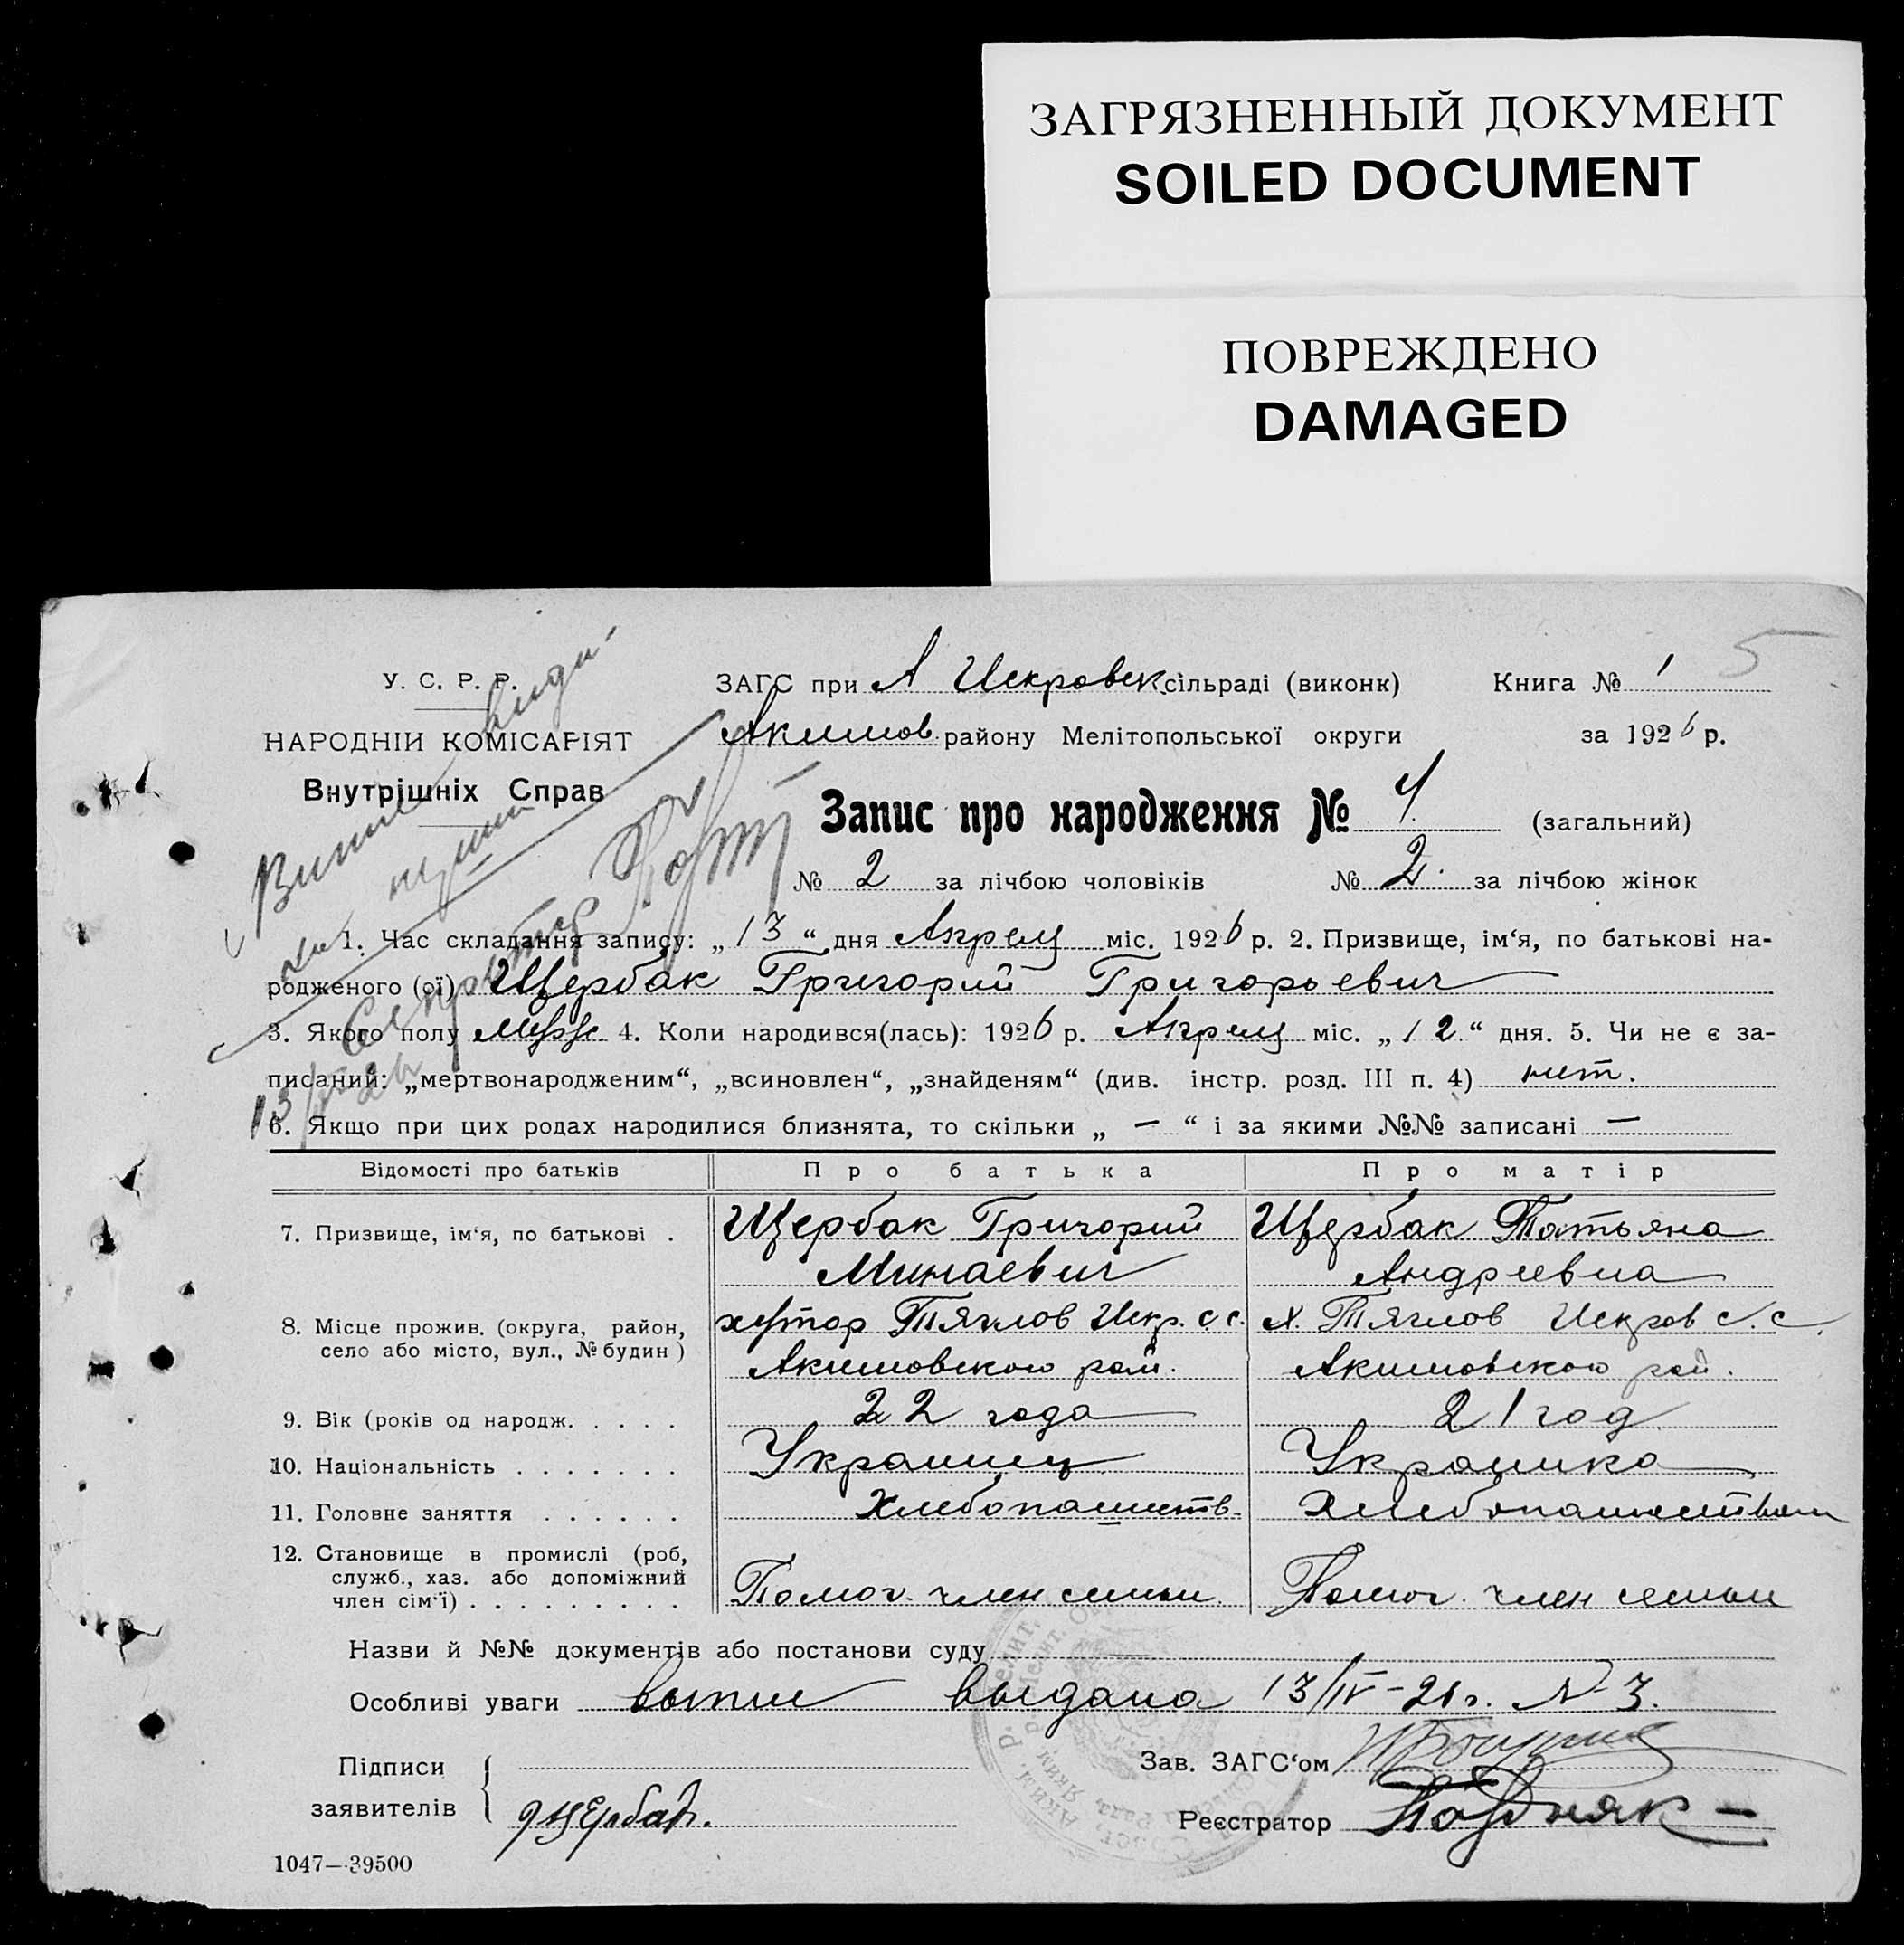 ЗАГРЯЗНЕННЫЙ ДОКУМЕНТ
SOILED DOCUMENT
ПОВРЕЖДЕНО
DAMAGED
5
У. С. Р. Р.
НАРОДНІЙ КОМІСАРІЯТ
Внутрішніх Справ
ЗАГС при А Искровск сільраді (виконк) Книга № 1
Акимов. району Мелітопольської округи за 1926 р.
Запис про народження № 4 (загальний)
№ 2 за лічбою чоловіків № 2. за лічбою жінок
1. Час складання запису: „13“ дня Апрель міс. 1926 р. 2. Призвище, ім‘я, по батькові на-
родженого (ої) Щербак Григорий Григорьевич
3. Якого полу Муж. 4. Коли народився(лась): 1926 р. Апрель міс. „12“ дня. 5. Чи не є за-
писаний: „мертвонародженим“, „всиновлен“, „знайденям“ (див. інстр. розд. III п. 4) нет.
6. Якщо при цих родах народилися близнята, то скільки „ — “ і за якими №№ записані —
Відомості про батьків Про батька Про матір
7. Призвище, ім‘я, по батькові . Щербак Григорий Щербак Татьяна
Минаевич Андреевна
8. Місце прожив. (округа, район, хутор Тяглов Искр. с.с. х. Тяглов Искров с.с.
село або місто, вул., № будин) Акимовского рай. Акимовского рай.
9. Вік (років од народж. . . . . 22 года 21 год
10. Національність . . . . . . . Украинец Украинка
11. Головне заняття . . . . . . Хлебопашеств. Хлебопашеством
12. Становище в промислі (роб,
служб., хаз. або допоміжний
член сім‘ї) . . . . . . . . . Помог. член семьи. Помог. член семьи
Назви й №№ документів або постанови суду
Особливі уваги выпись выдана 13/IV-26 г. № 3.
Підписи Зав. ЗАГС‘ом
заявителів Щербак. Реєстратор Поздняк
1047—39500